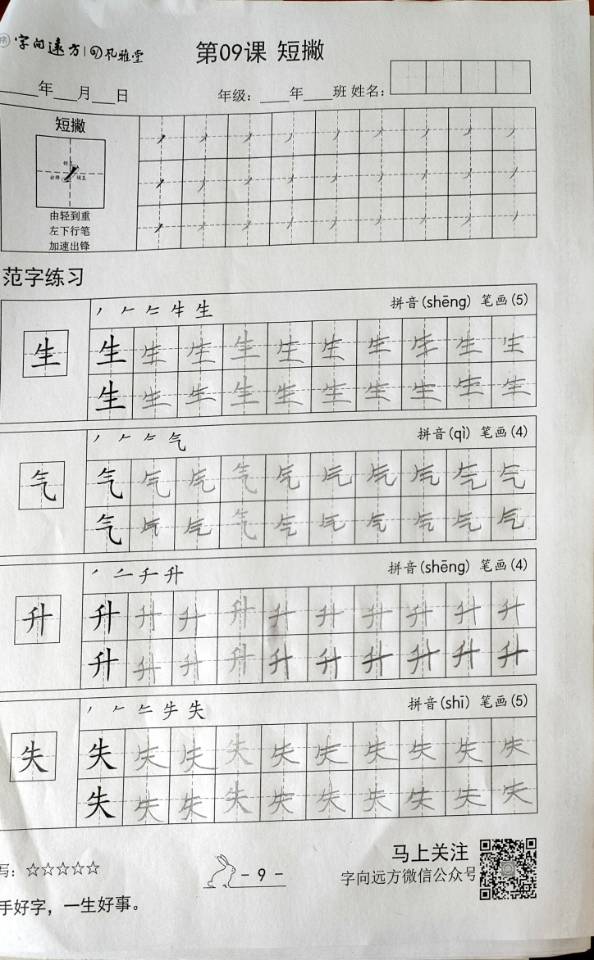 字向远方 | 习凡雅堂
第09课 短撇
年 月 日 年级: 年 班 姓名:
短撇
由轻到重
左下行笔
加速出锋
范字练习
生
拼音(shēng) 笔画(5)
生 生 生 生 生 生 生 生 生 生
生 生 生 生 生 生 生 生 生 生
气
拼音(qì) 笔画(4)
气 气 气 气 气 气 气 气 气 气
气 气 气 气 气 气 气 气 气 气
升
拼音(shēng) 笔画(4)
升 升 升 升 升 升 升 升 升 升
升 升 升 升 升 升 升 升 升 升
失
拼音(shī) 笔画(5)
失 失 失 失 失 失 失 失 失 失
失 失 失 失 失 失 失 失 失 失
写: ☆☆☆☆☆
- 9 -
马上关注
字向远方微信公众号
手好字，一生好事。